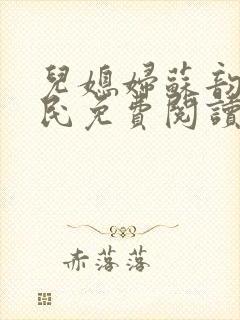 兒媳婦蘇韵
民免費閱讀
赤落落